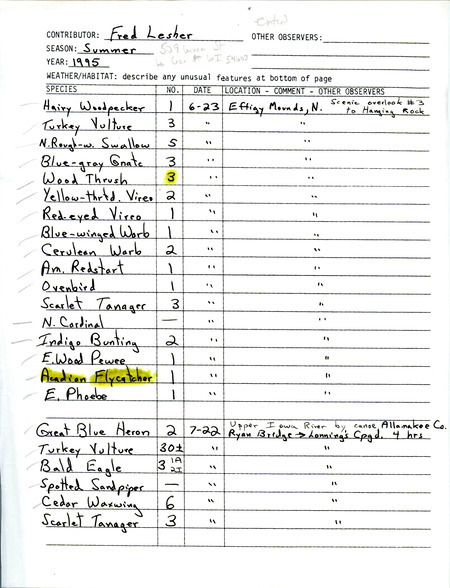 Entered
CONTRIBUTOR: Fred Lesher OTHER OBSERVERS:
SEASON: Summer 509 Winona St
YEAR: 1995 WI 54603
WEATHER/HABITAT: describe any unusual features at bottom of page
SPECIES NO. DATE LOCATION - COMMENT - OTHER OBSERVERS
Hairy Woodpecker 1 6-23 Effigy Mounds, N. Scenic overlook #3 to Hanging Rock
Turkey Vulture 3 " "
N. Rough-w. Swallow 5 " "
Blue-gray Gnatc 3 " "
Wood Thrush 3 " "
Yellow-thrtd. Vireo 2 " "
Red-eyed Vireo 1 " "
Blue-winged Warb 1 " "
Cerulean Warb 2 " "
Am. Redstart 1 " "
Ovenbird 1 " "
Scarlet Tanager 3 " "
N. Cardinal — " "
Indigo Bunting 2 " "
E. Wood Pewee 1 " "
Acadian Flycatcher 1 " "
E. Phoebe 1 " "
Great Blue Heron 2 7-22 Upper Iowa River by canoe Allamakee Co. Ryan Bridge → Lonning's Cpgd. 4 hrs
Turkey Vulture 30± " "
Bald Eagle 3 1A 2I " "
Spotted Sandpiper — " "
Cedar Waxwing 6 " "
Scarlet Tanager 3 " "